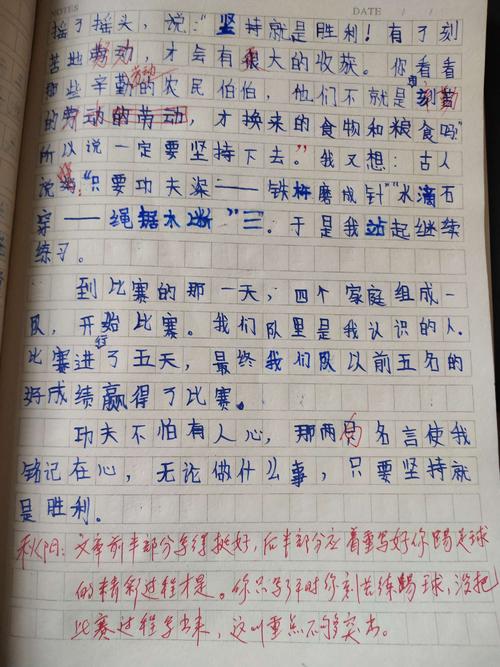 NOTES DATE / /
摇了摇头，说："坚持就是胜利！有了刻
苦地劳动，才会有很大的收获。你看看
那些辛勤的农民伯伯，他们不就是辛勤
劳动
的劳动的劳动，才换来的食物和粮食吗"
所以说一定要坚持下去。"我又想：古人
说"只要功夫深——铁杵磨成针""水滴石
穿——绳锯木断"三。于是我站起继续
练习。
到比赛的那一天，四个家庭组成一
队，开始比赛。我们队里是我认识的人.
比赛进行了五天，最终我们队以前五名的
好成绩赢得了比赛。
功夫不怕有人心，那两句名言使我
铭记在心，无论做什么事，只要坚持就
是胜利。
阳：文章前半部分写得挺好，后半部分应着重写好你踢足球
的精彩过程才是。你只写了平时你刻苦练踢球，没把
比赛过程写出来，这叫重点不够突出。